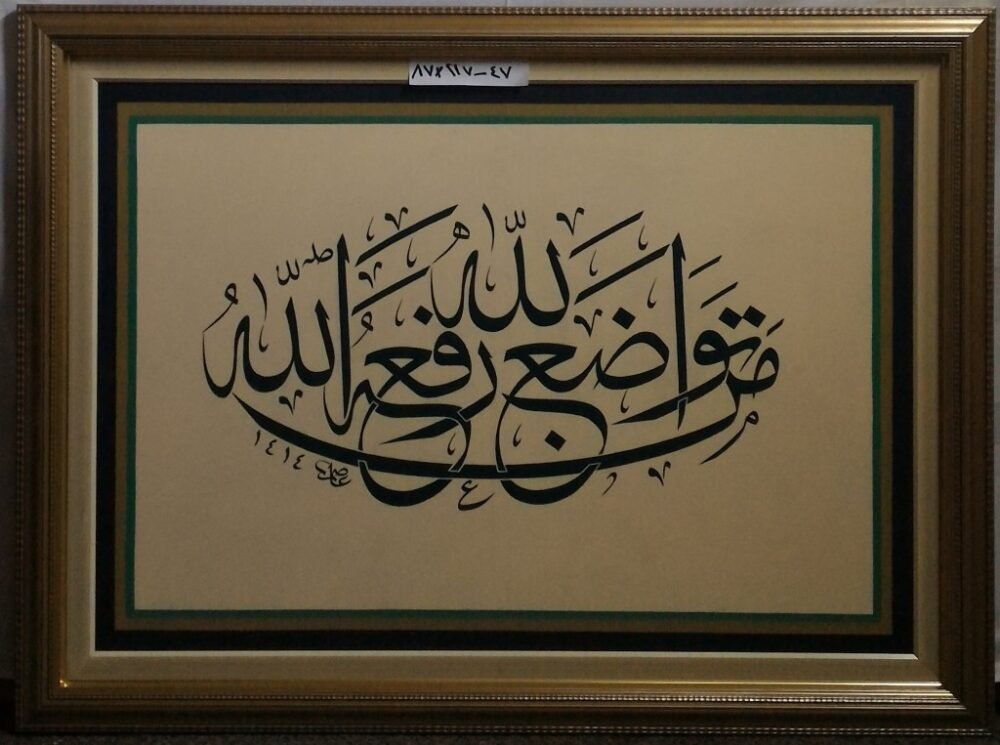 من تواضع لله رفعه الله
١٤١٤